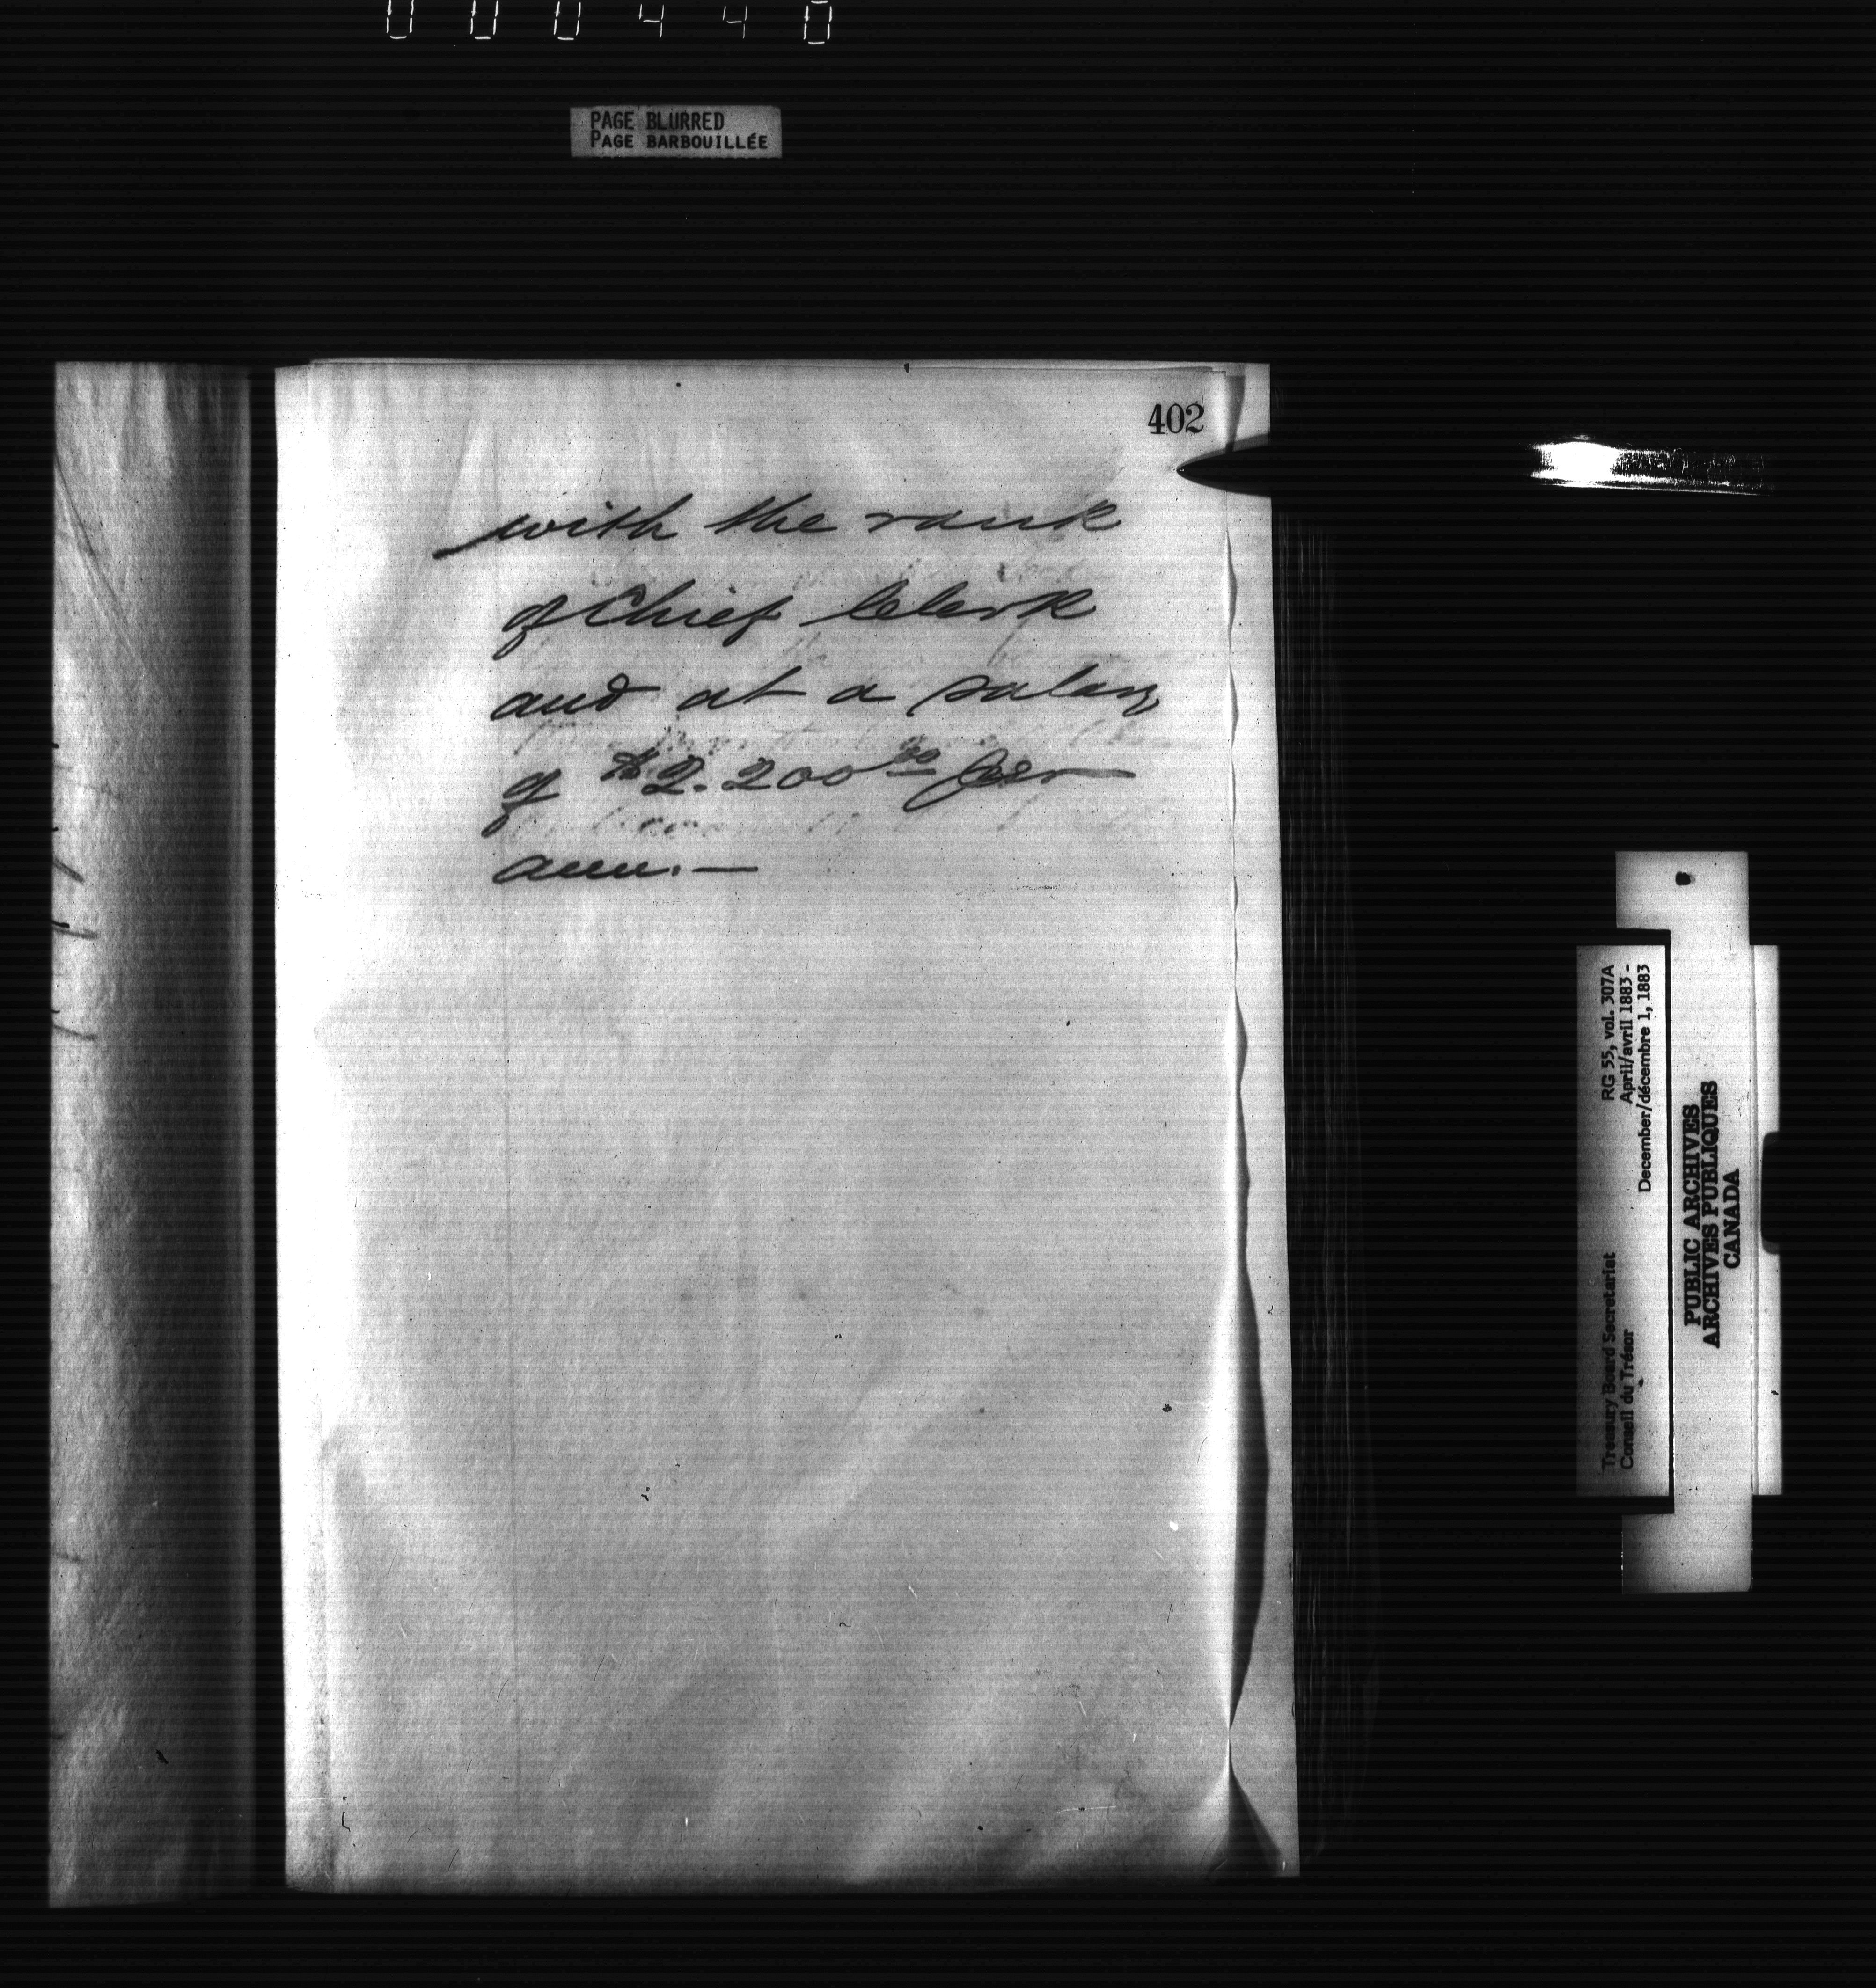 000440
PAGE BLURRED
PAGE BARBOUILLÉE
402
with the rank
of Chief Clerk
and at a salary
of $2.200.00 per
ann. —
RG 55, vol. 307A
April/avril 1883 -
December/décembre 1, 1883
Treasury Board Secretariat
Conseil du Trésor
PUBLIC ARCHIVES
ARCHIVES PUBLIQUES
CANADA